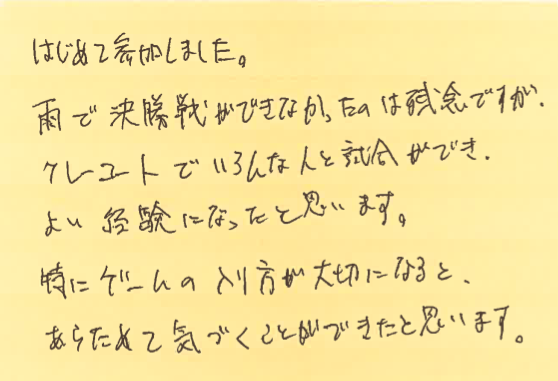 はじめて参加しました。
雨で決勝戦ができなかったのは残念ですが、
クレーコートでいろんな人と試合ができ、
よい経験になったと思います。
特にゲームの入り方が大切になると、
あらためて気づくことができたと思います。